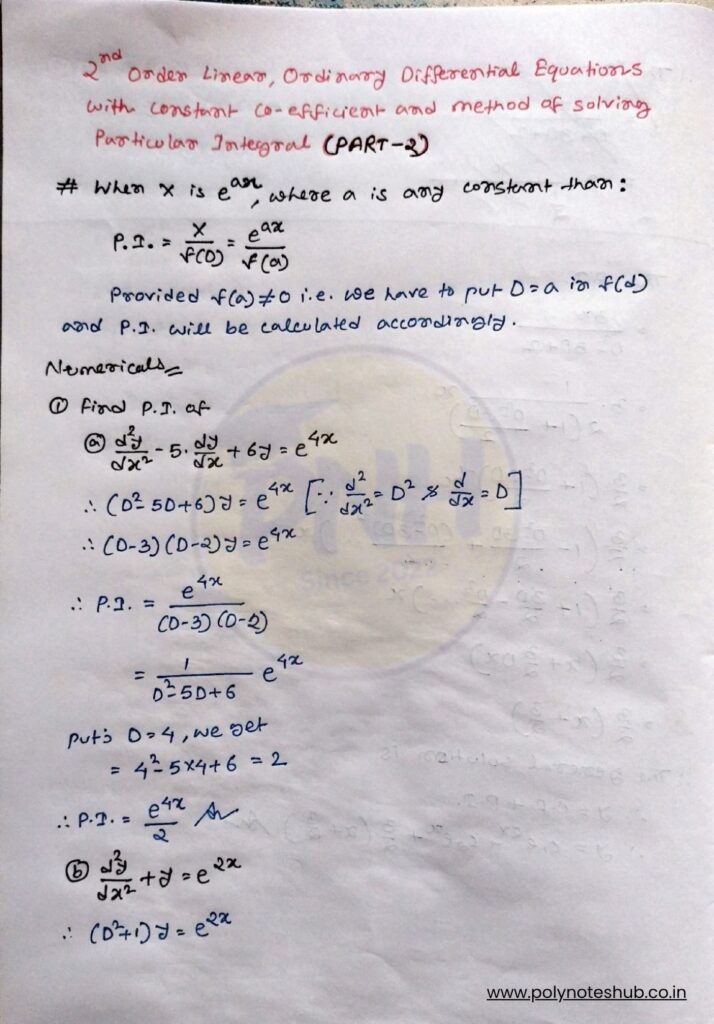 2nd Order Linear, Ordinary Differential Equations
with constant co-efficient and method of solving
Particular Integral (PART-2)
# When X is e^ax, where a is any constant than:
P.I. = X/f(D) = e^ax/f(a)
Provided f(a)≠0 i.e. we have to put D=a in f(d)
and P.I. will be calculated accordingly.
Numericals =
① Find P.I. of
ⓐ d²y/dx² - 5. dy/dx + 6y = e^4x
∴ (D²-5D+6)y = e^4x [∵ d²/dx² = D² & d/dx = D]
∴ (D-3)(D-2)y = e^4x
∴ P.I. = e^4x/(D-3)(D-2)
= 1/D²-5D+6 e^4x
Put's D=4, we get
= 4²-5×4+6 = 2
∴ P.I. = e^4x/2 Ans
ⓑ d²y/dx² + y = e^2x
∴ (D²+1)y = e^2x
Since
www.polynoteshub.co.in